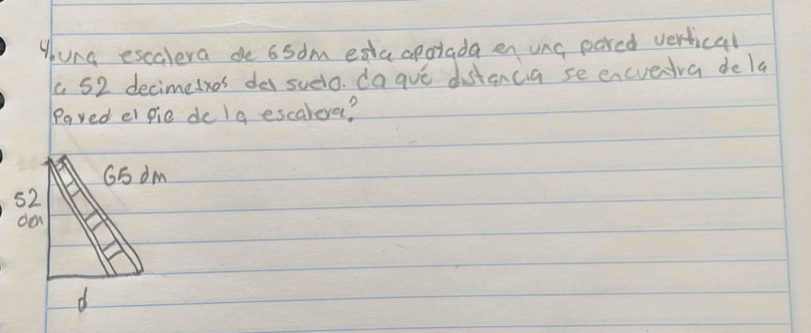 4. una escalera de 65dm esta apoyada en una pared vertical
a 52 decimetros del suelo. ¿a qué distancia se encuentra de la
Pared el pie de la escalera?
65 dm
52
dm
d